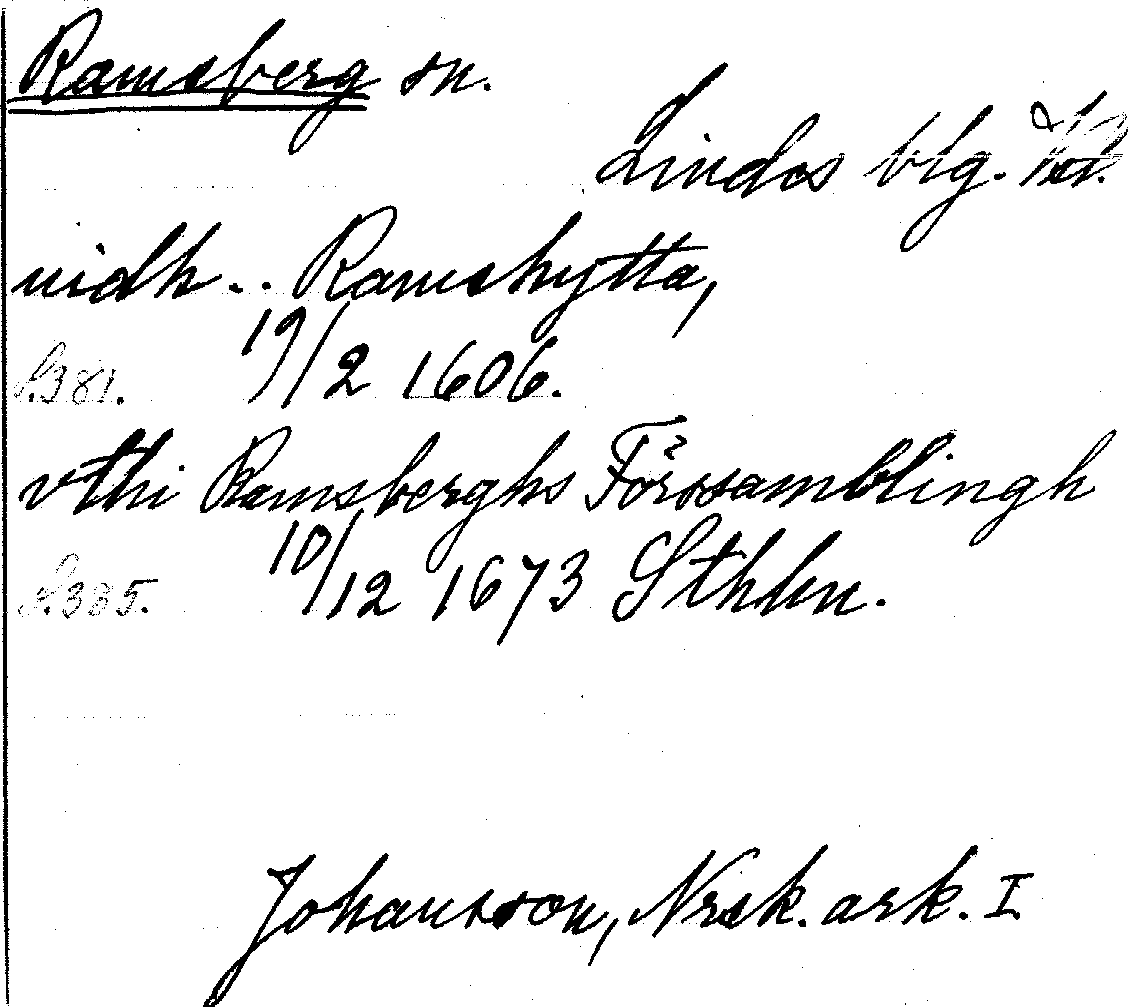 Ramsberg sn.
Lindes blg.
vidh .. Ramshytta,
S.381. 19/2 1606.
vthi Ramsberghs Församblingh
S.385. 10/12 1673 Sthlm.
Johansson, Nrsk. ark. I